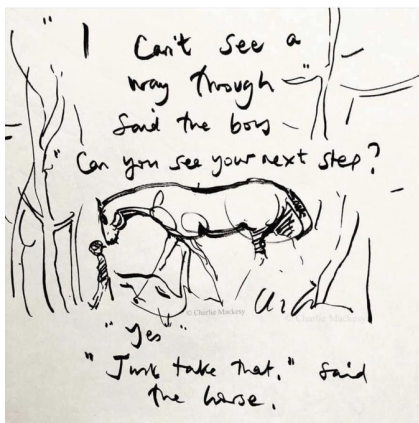 "I Can't see a
way through"
said the boy
"Can you see your next step?"
© Charlie Mackesy
Charlie Mackesy
"Yes"
"Just take that," said
the horse.